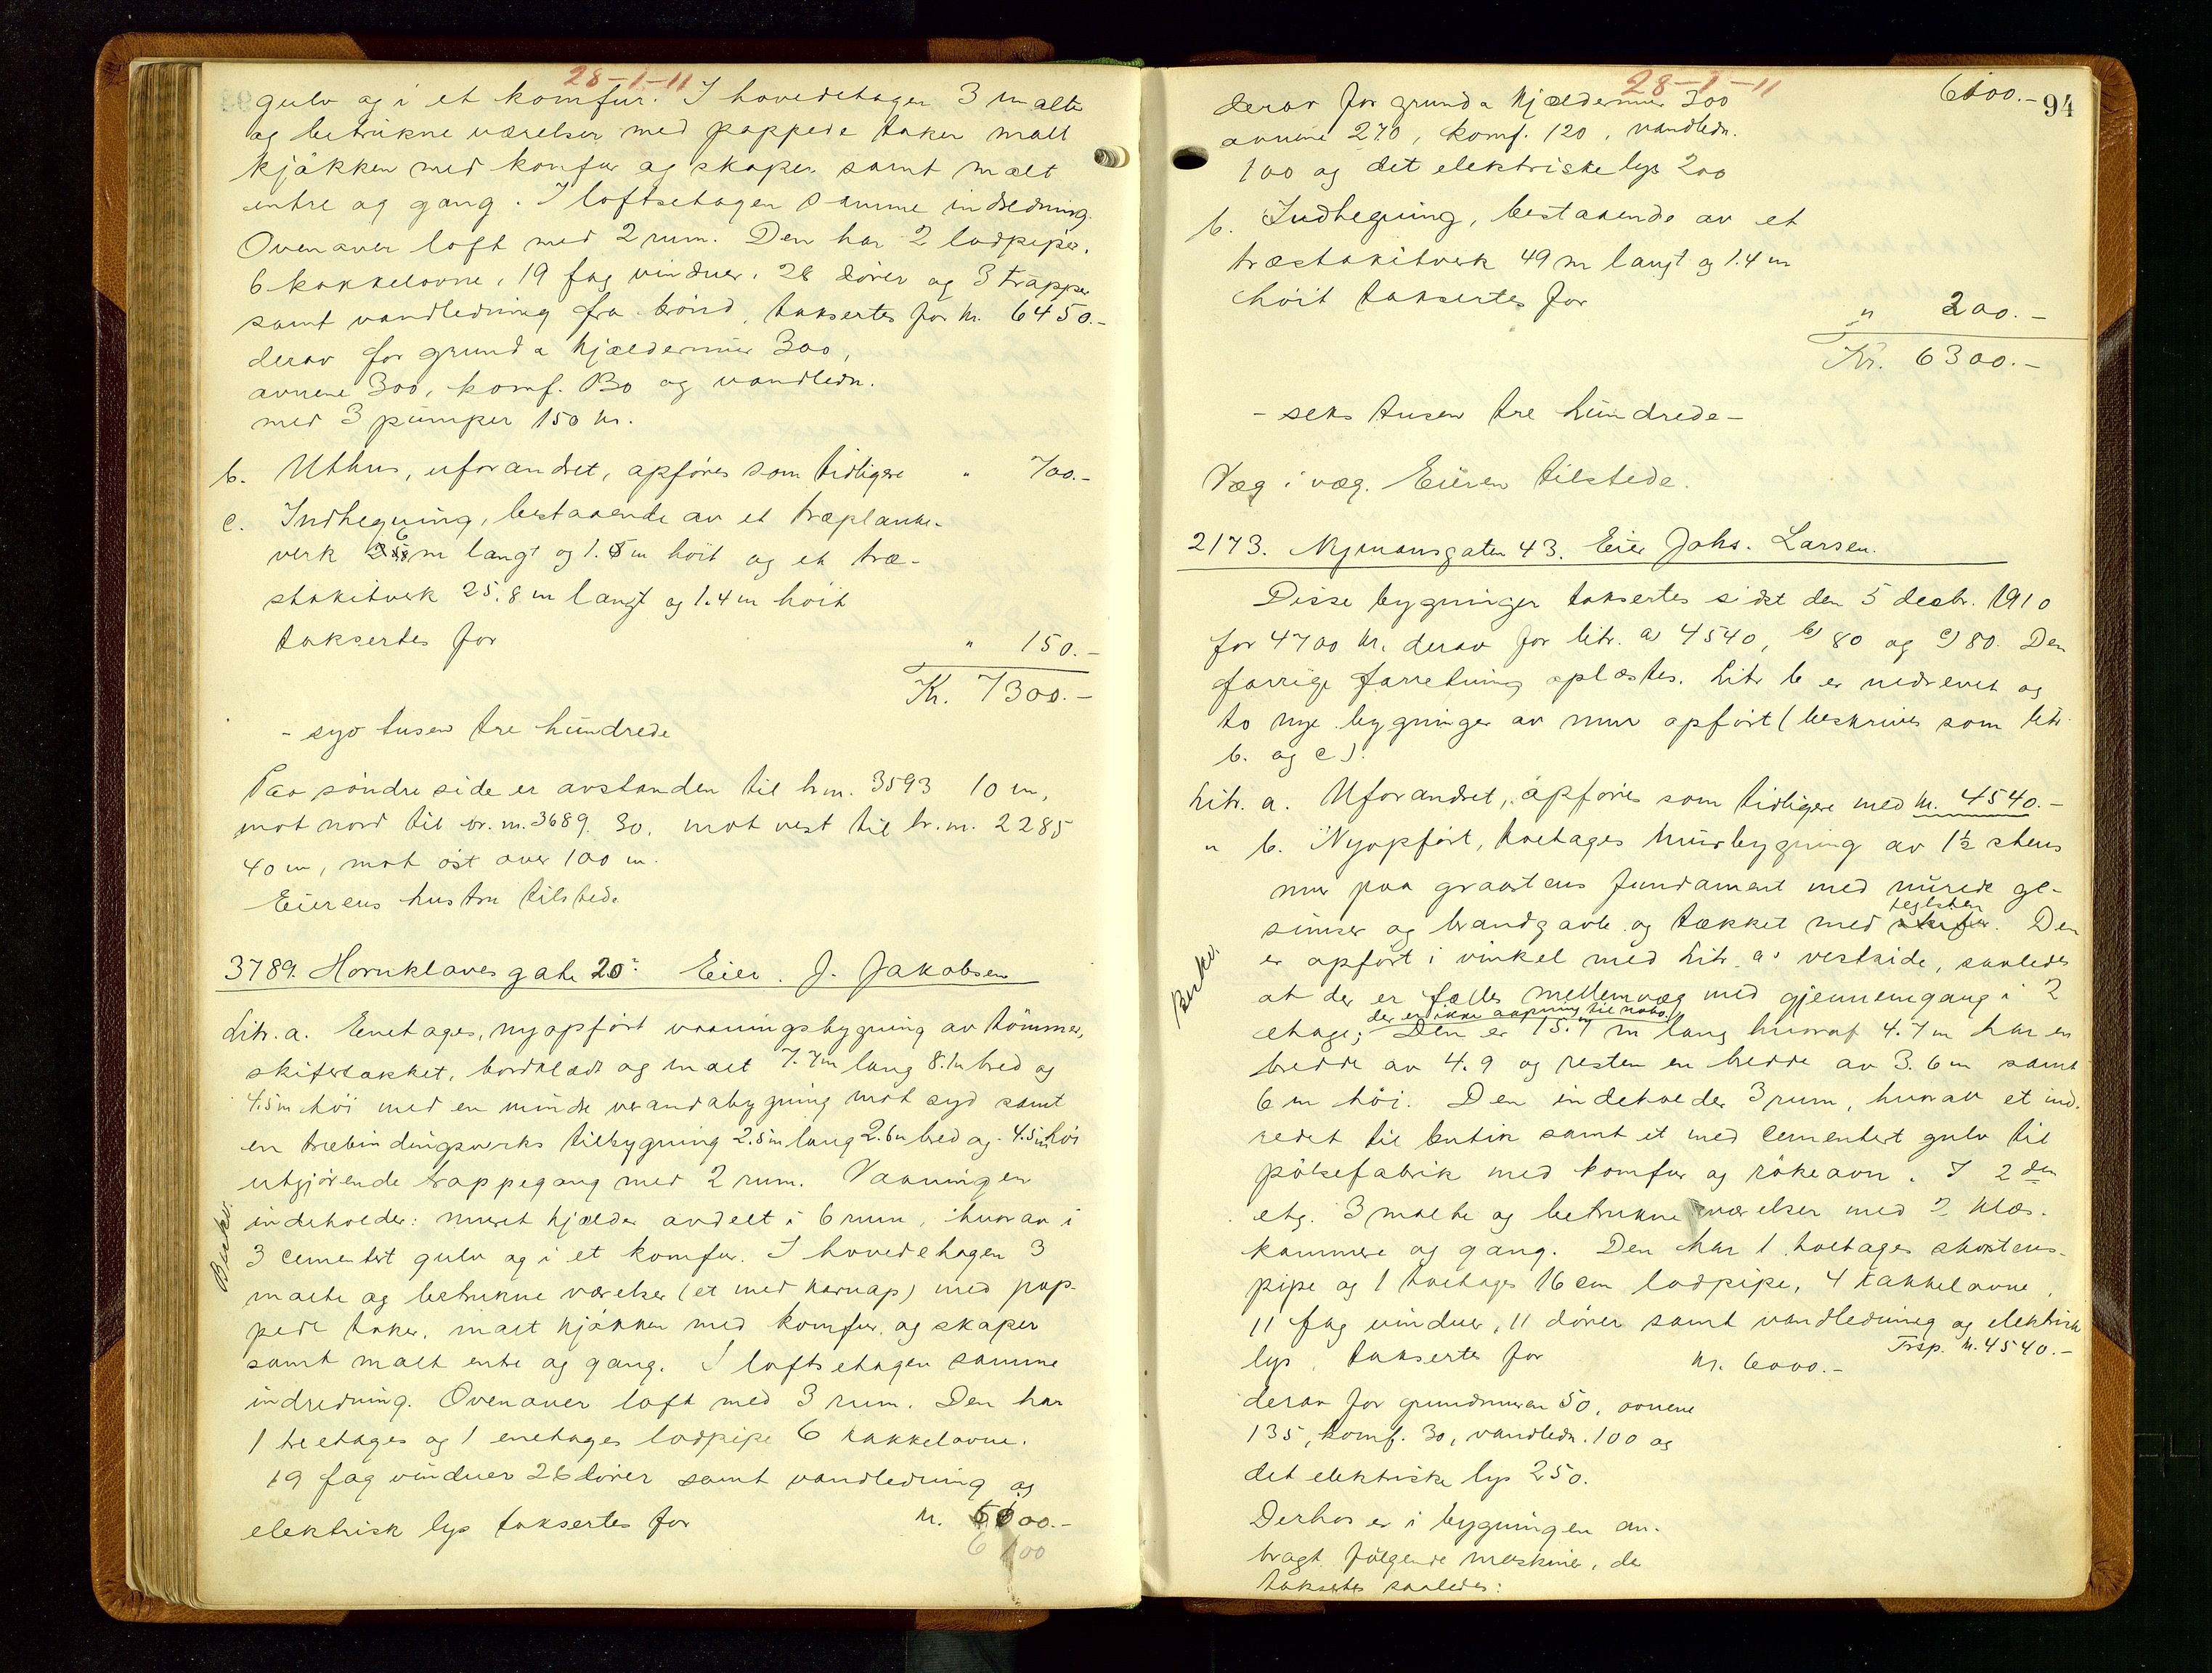 28-1-11
gulv og i et komfur. I hovedetagen 3 malte
og betrukne værelser med pappede taker malt
kjøkken med komfur og skaper samt malt
entre og gang. I loftsetagen samme indredning.
Ovenover loft med 2 rum. Den har 2 lodpiper,
6 kakkelovne, 19 fag vinduer, 28 dører og 3 trapper
samt vandledning fra brønd, taksertes for kr. 6450.-
derav for grund & kjældermur 300,
ovnene 300, komf. 130 og vandledn.
med 3 pumper 150 kr.
b. Uthus, uforandret, opføres som tidligere " 700.-
c. Indhegning, bestaaende av et træplanke-
verk m langt og 1. m høit og et træ-
stakitverk 25.8 m langt og 1.4 m høit
taksertes for " 150.-
Kr. 7300.-
- syv tusen tre hundrede
Paa søndre side er avstanden til br.n. 3593 10 m,
mot nord til br. n. 3689. 30, mot vest til br. n. 2285
40 m, mot øst over 100 m.
Eierens hustru tilstede
3789. Hornklaves gate 20. Eier. J. Jakobsen
Litr. a. Enetages, nyopført vaaningsbygning av tømmer,
skifertækket, bordklædt og malt 7.7 m lang 8.1 m bred og
4.5 m høi med en mindre verandabygning mot syd samt
en træbindingsverks tilbygning 2.5 m lang 2.6 m bred og 4.5 m høi
utgjørende trappegang med 2 rum. Vaaningen
indeholder: muret kjælder avdelt i 6 rum, hvorav i
3 cementert gulv og i et komfur. I hovedetagen 3
malte og betrukne værelser (et med karnap) med pap-
pede taker, malt kjøkken med komfur og skaper
samt malt entre og gang. I loftsetagen samme
indredning. Ovenover loft med 3 rum. Den har
1 treetages og 1 enetages lodpipe 6 kakkelovne.
19 fag vinduer 26 dører samt vandledning og
elektrisk lys taksertes for kr. 6100.-
6100
Beskr.
28-1-11
94
6100.-
derav for grund & kjældermur 300
ovnene 270, komf. 120, vandledn.
100 og det elektriske lys 200
b. Indhegning, bestaaende av et
træstakitverk 49 m langt og 1.4 m
høit taksertes for
" 200.-
Kr. 6300.-
- seks tusen tre hundrede -
Væg i væg. Eieren tilstede.
2173. Nymansgaten 43. Eier Johs. Larsen.
Disse bygninger taksertes sidst den 5 decbr. 1910
for 4700 kr. derav for litr. a) 4540, b) 80 og c) 80. Den
forrige forretning oplæstes. Litr b er nedrevet og
to nye bygninger av mur opført (beskrives som litr.
b. og c).
Litr. a. Uforandret, opføres som tidligere med kr. 4540.-
" b. Nyopført, toetages murbygning av 1½ stens
mur paa graastens fundament med murede ge-
simser og brandgavle og tækket med skifer. Den
teglsten
er opført i vinkel med Litr. a's vestside, saaledes
at der er fælles mellemvæg med gjennemgang i 2
der er ikke aapning til nabo.
etage; Den er 15.7 m lang hvoraf 4.7 m har en
bredde av 4.9 og resten en bredde av 3.6 m samt
6 m høi. Den indeholder 3 rum, hvorav et ind-
redet til butik samt et med cementert gulv til
pølsefabrik med komfur og røkeovn. I 2den
etg. 3 malte og betrukne værelser med 2 klæs-
kammere og gang. Den har 1 toetages skorstens-
pipe og 1 toetages 16 cm lodpipe, 4 kakkelovne,
11 fag vinduer, 11 dører samt vandledning og elektrisk
lys, taksertes for kr. 6000.- Trsp. kr. 4540.-
derav for grundmuren 50, ovnene
135, komf. 30, vandledn. 100 og
det elektriske lys 250.
Derhos er i bygningen an-
bragt følgende maskiner, de
taksertes saaledes:
Beskr.